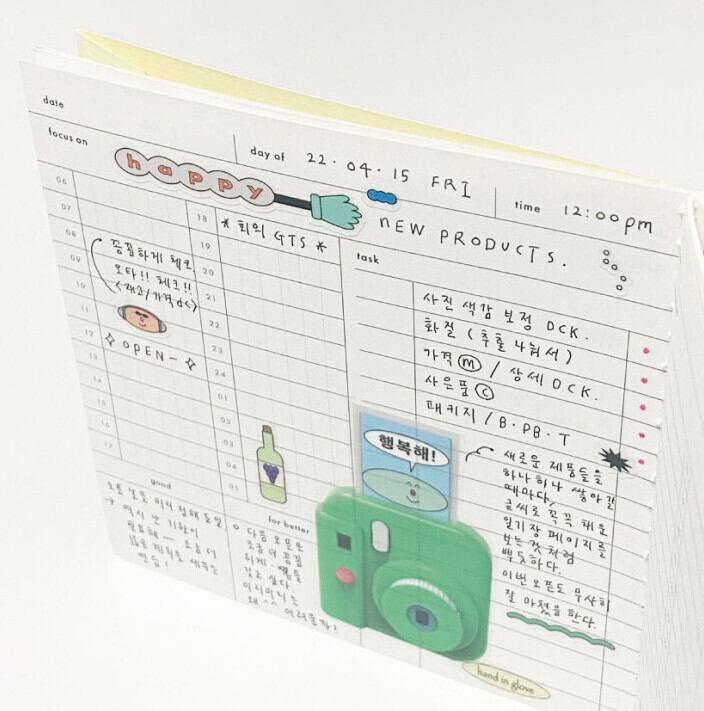 date
focus on
happy
day of 22·04·15 FRI
time 12:00pm
NEW PRODUCTS.
06
07
08
09
10
11
12
13
14
15
16
17
꼼꼼하게 체크
오타!! 체크!!
<재고/가격 등>
✧ OPEN- ✧
18
19
20
21
22
23
24
01
02
03
04
05
* 회의 GTS *
task
사진 색감 보정 OCK.
화질 (추출 나눠서)
가격 ⓜ / 상세 OCK.
사은품 ⓒ
패키지 / B·PB·T
행복해!
새로운 제품들을
하나하나 쌓아갈
때마다,
글씨로 꼭꼭 채운
일기장 페이지를
보는 것처럼
뿌듯하다.
이번 오픈도 무사히
잘 마쳤음 한다.
good
오늘 할 일 미리 정해
→ 역시 난 기획이
필요해— 조금 더
계획을 세우는
for better
○ 다음 오픈은
조금 더 꼼꼼
하게
갖고 싶다.
이리
왜 ^^ 어려울까?
hand in glove